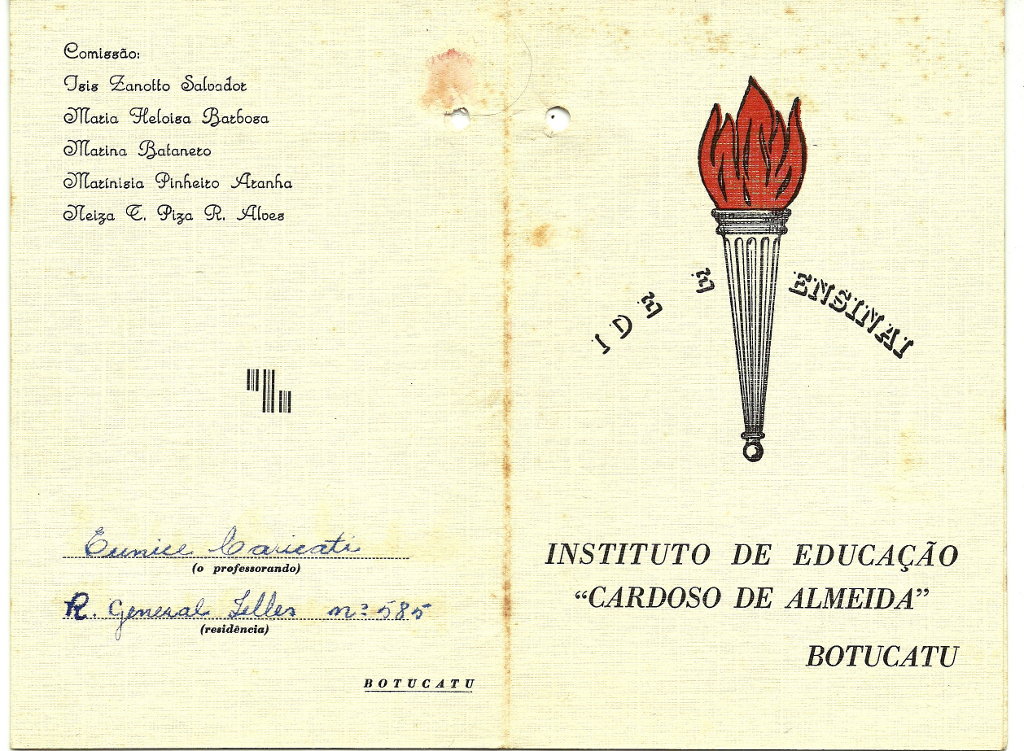 Comissão:
Isis Zanotto Salvador
Maria Heloisa Barbosa
Marina Batanero
Marínisia Pinheiro Aranha
Neiza T. Piza R. Alves
Eunice Caricati
(o professorando)
R. General Telles nº 585
(residência)
BOTUCATU
IDE E ENSINAI
INSTITUTO DE EDUCAÇÃO
“CARDOSO DE ALMEIDA”
BOTUCATU